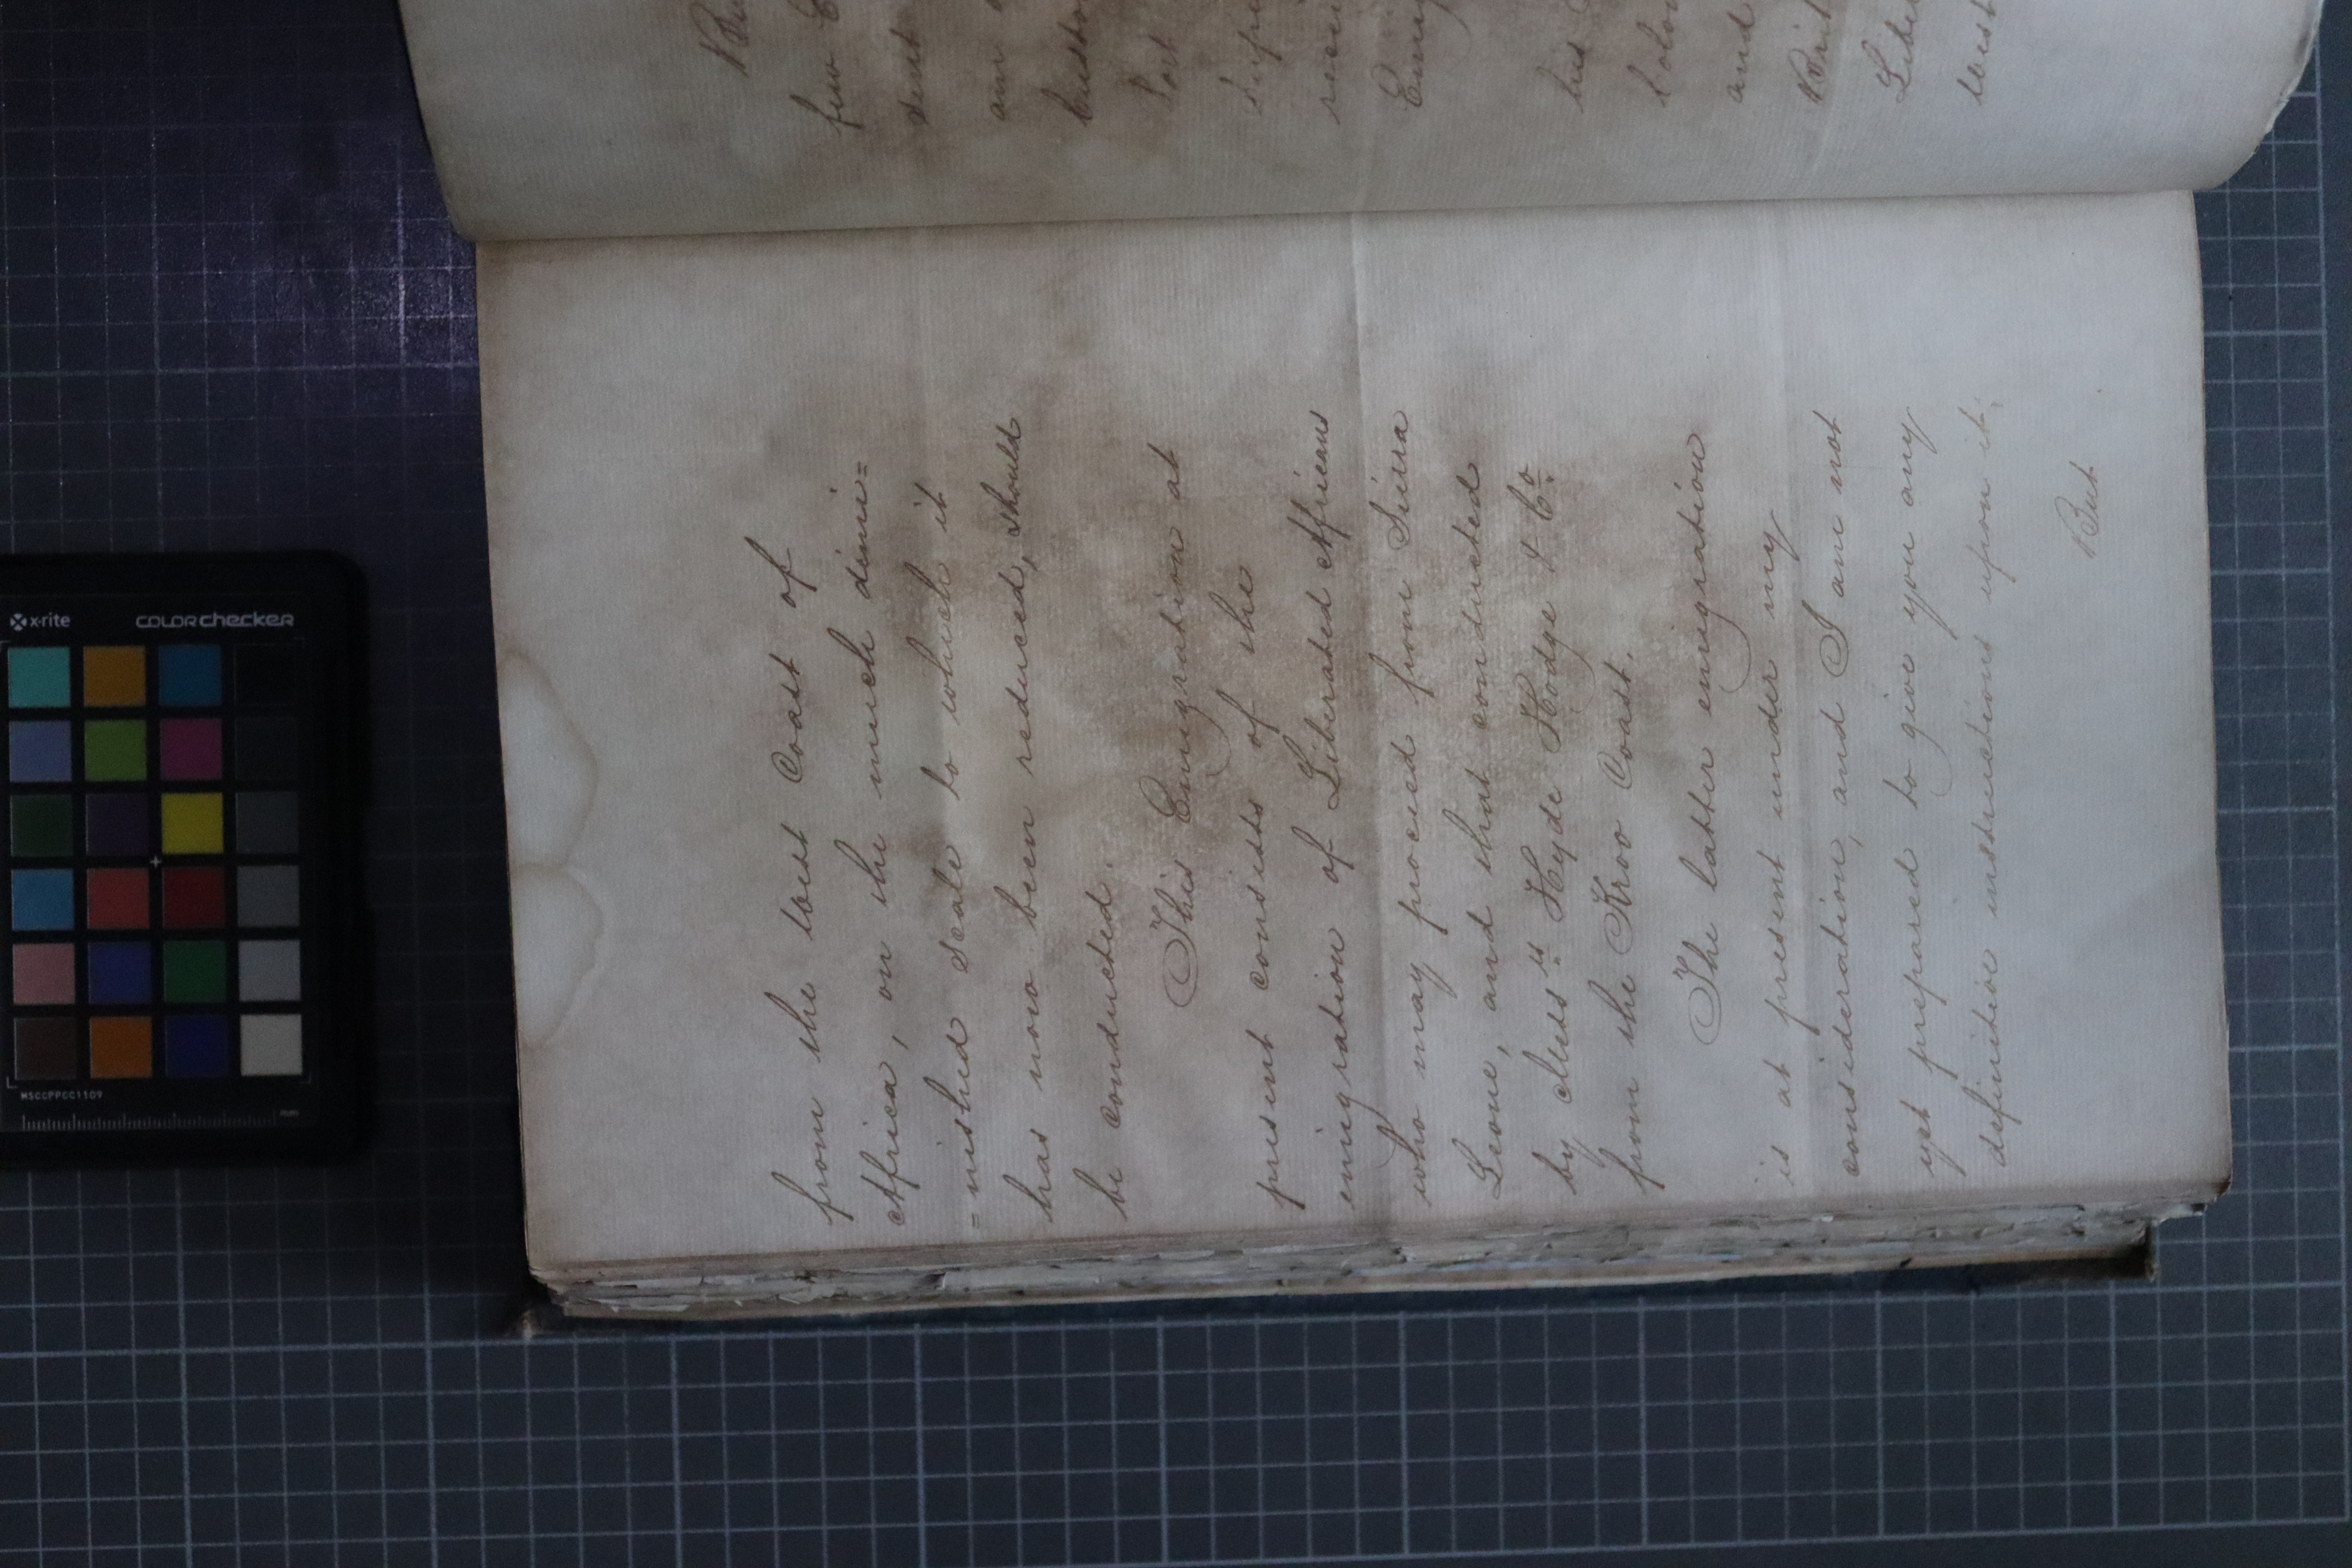 from the West Coast of
Africa, on the much dimi=
=nished scale to which it
has now been reduced, should
be conducted.
This Emigration at
present consists of the
emigration of Liberated Africans
who may proceed from Sierra
Leone, and that conducted
by Mess.rs Hyde Hodge & Co.
from the Kroo Coast.
The latter emigration
is at present under my
consideration, and I am not
yet prepared to give you any
definitive instructions upon it.
But
few
sent
am
Custo
Port
rece
Emig
his
Colo
and
Brit
Libe
West
x-rite
colorchecker
MSCCPPCC1109
mm